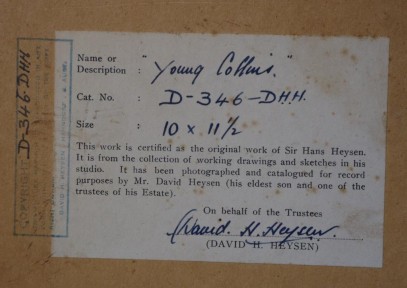 Name or " Young Collins. "
Description :
Cat. No. : D-346-D.H.H.
Size : 10 x 11 1/2
This work is certified as the original work of Sir Hans Heysen.
It is from the collection of working drawings and sketches in his
studio. It has been photographed and catalogued for record
purposes by Mr. David Heysen (his eldest son and one of the
trustees of his Estate).
On behalf of the Trustees
David. H. Heysen.
(DAVID H. HEYSEN)
D-346-DHH